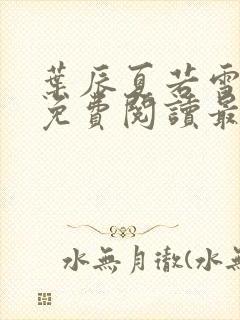 葉辰夏若雪
免費閱讀最
水無月徹(水無